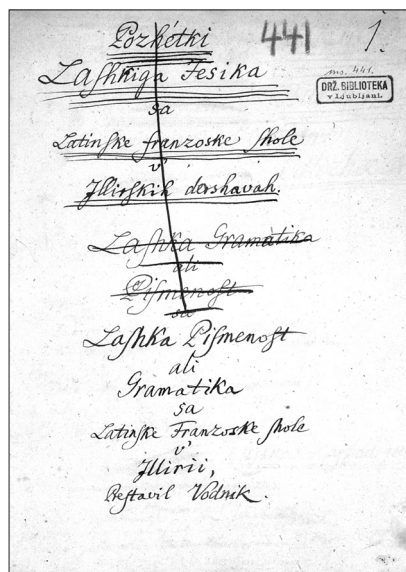 Pozhétki 441 1.
Laſhkiga Jesika
ms. 441.
DRŽ. BIBLIOTEKA
v Ljubljani.
sa
Latinſke franzoske ſhole
v'
Jllirſkih dershavah.
Laſhka Gramatika
ali
Piſmenoſt
sa
Laſhka Piſmenoſt
ali
Gramatika
sa
Latinſke Franzoske ſhole
v'
Jllirii,
Peſtavil Vodnik.